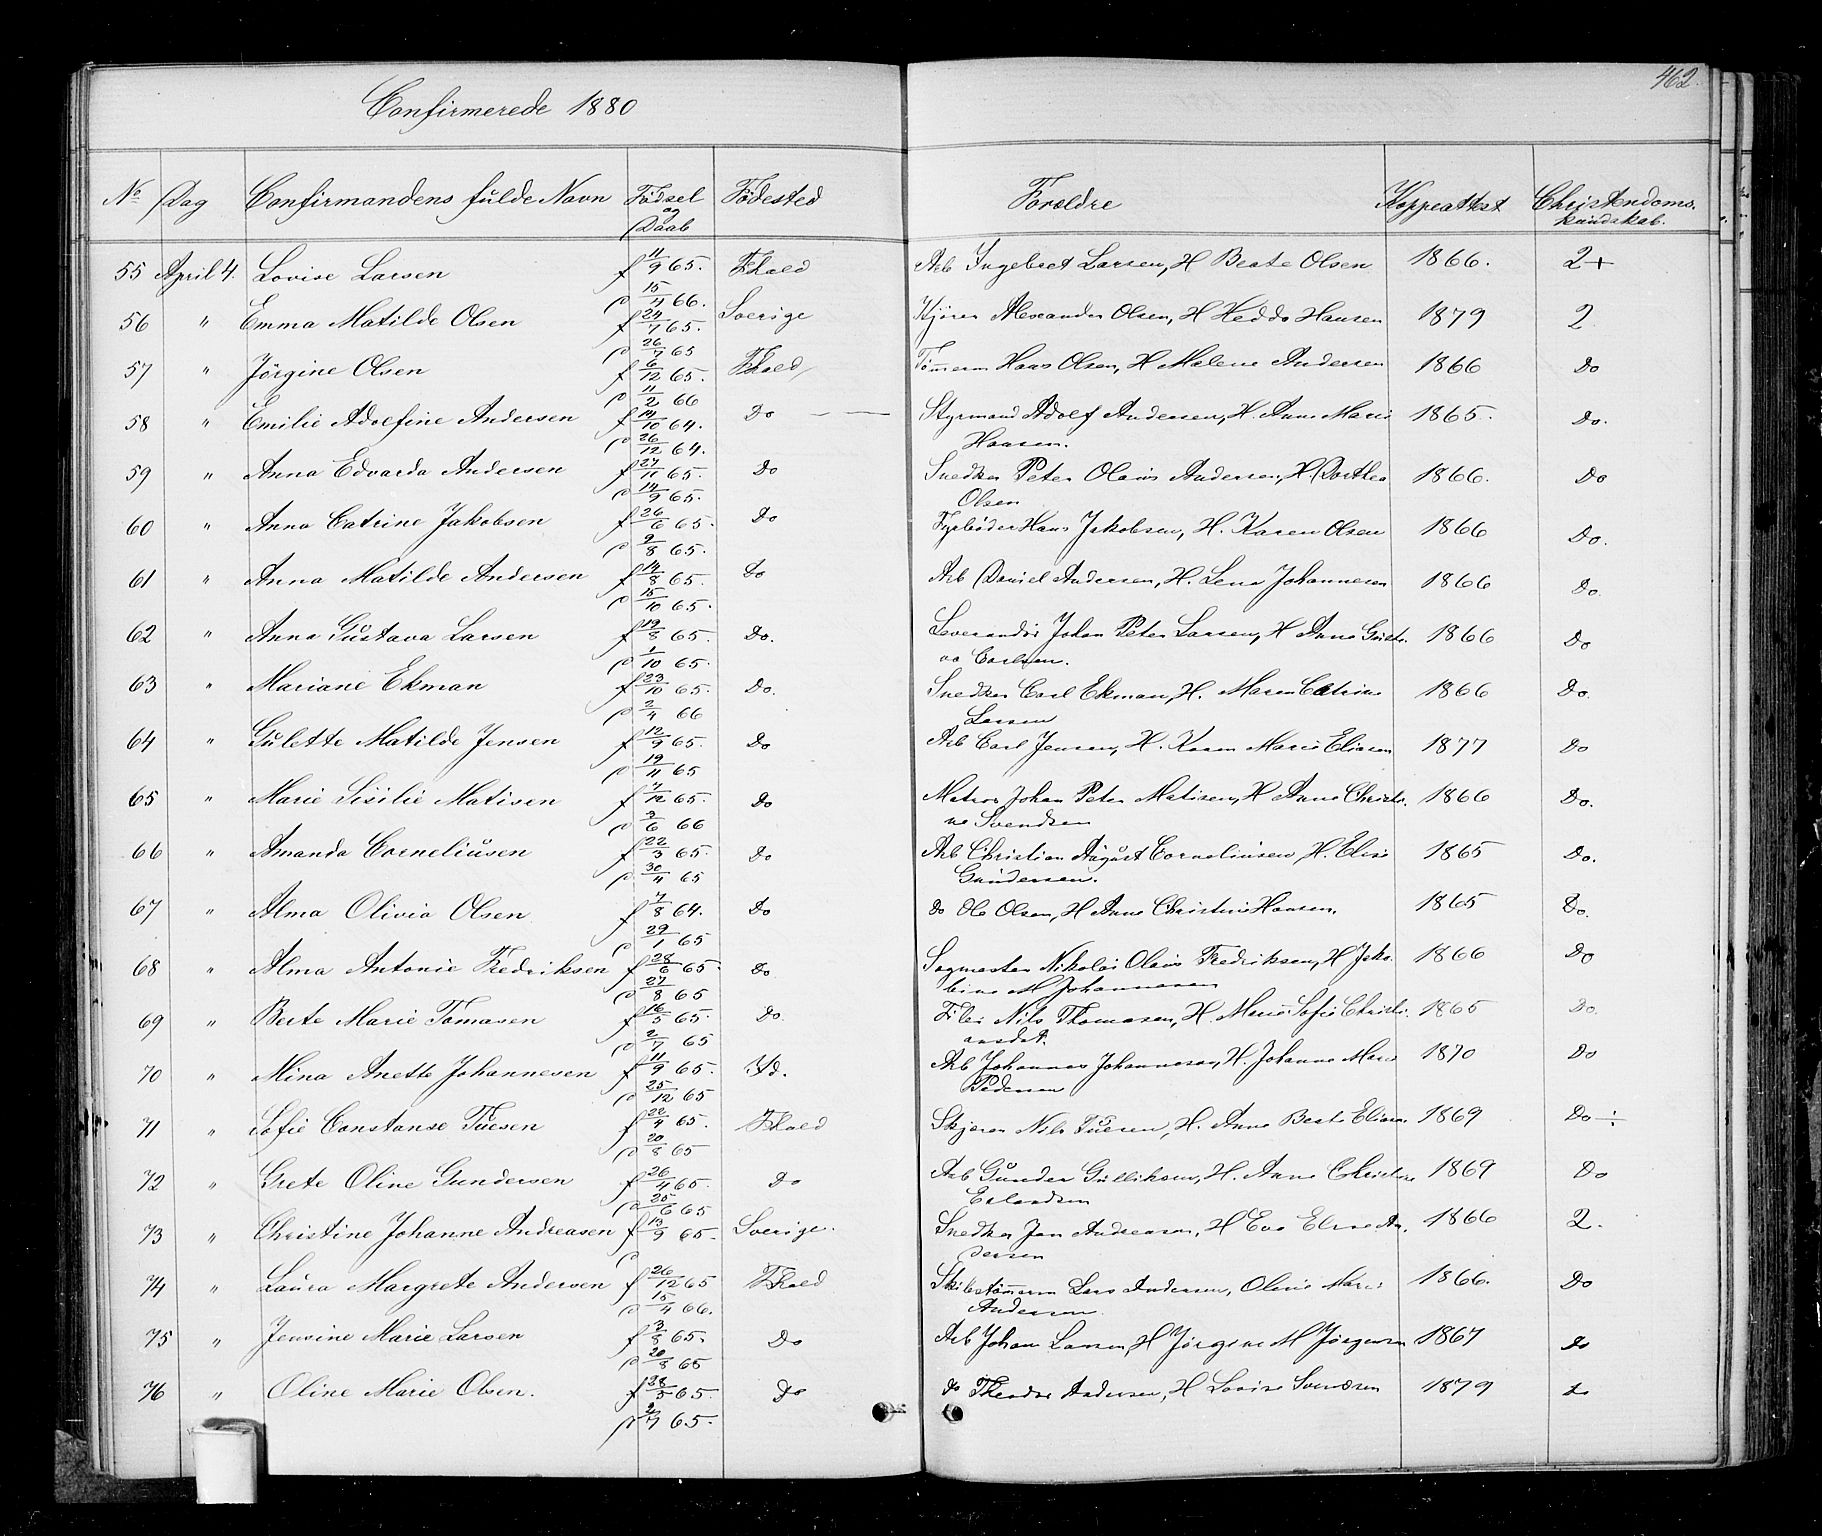 462.
Confirmerede 1880
No Dag Confirmandens fulde Navn Fødsel og Daab Fødested Forældre Koppeattest Christendoms kundskab.
55 April 4. Lovise Larsen f 11/9 65. Fhald Arb Ingebret Larsen, H Beate Olsen 1866. 2+
d 15/4 66.
56 " Emma Matilde Olsen f 24/7 65. Sverige Kjører Alexander Olsen, H Hedda Hansen 1879 2
d 26/7 65
57 " Jørgine Olsen f 6/12 65. Fhald Tømerm Hans Olsen, H Malene Andersen 1866 Do
d 11/2 66
58 " Emilie Adolfine Andersen f 14/10 64. Do Styrmand Adolf Andersen, H. Anne Marie 1865. Do.
d 26/12 64. Hansen.
59 " Anna Edvarda Andersen f 27/11 65. Do Snedker Peter Olaus Andersen, H. Dorthea 1866. Do
d 14/9 65. Olsen
60 " Anna Catrine Jakobsen f 26/6 65. Do Fyrbøder Hans Jakobsen, H. Karen Olsen 1866 Do.
d 9/8 65.
61 " Anna Matilde Andersen f 14/8 65. Do Arb Daniel Andersen, H. Lena Johannesen 1866 Do.
d 15/10 65.
62 " Anna Gustava Larsen f 19/8 65. Do. Leverandør Johan Peter Larsen, H Anne Gusta- 1866 Do
d 1/10 65. va Carlsen.
63 " Mariane Ekman f 23/10 65. Do. Snedker Carl Ekman, H. Maren Catrine 1866 Do.
d 2/4 66 Larsen
64 " Gulette Matilde Jensen f 12/9 65. Do Arb Carl Jensen, H. Karen Marie Eliasen 1877 Do
d 19/11 65
65 " Marie Sisilie Matisen f 7/12 65. Do Matros Johan Peter Matisen, H Anne Christi- 1866 Do.
d 3/6 66 ne Svendsen
66 " Amanda Corneliusen f 22/3 65. Do Arb Christian August Corneliusen, H. Elise 1865 Do.
d 30/4 65 Gundersen.
67 " Alma Olivia Olsen f 7/8 64. Do do Ole Olsen, H Anne Christine Hansen. 1865 Do.
d 29/1 65
68 " Alma Antonie Fredriksen f 28/6 65. Do Sagmester Nikolai Olaus Fredriksen, H Jako- 1866 Do
d 27/8 65 bine M Johannesen
69 " Berte Marie Tomasen f 16/5 65. Do. Filer Nils Thomasen, H. Marie Sofie Christi- 1865 Do.
d 2/7 65 ansdat.
70 " Mina Anette Johannesen f 11/9 65. Id. Arb Johannes Johannesen, H. Johanne Marie 1870 Do
d 25/12 65 Pedersen
71 " Sofie Constanse Tuesen f 22/4 65. Fhald Skjærer Nils Tuesen, H. Anne Beate Eliasen 1869 Do ÷
d 20/8 65
72 " Grete Oline Gundersen f 26/4 65. Do Arb Gunder Gulliksen, H. Anne Christine 1869 Do
d 25/6 65 Erlandsen
73 " Christine Johanne Andreasen f 13/9 65. Sverige. Snedker Jan Andreasen, H Eva Elise An- 1866 2.
d dersen
74 " Laura Margrete Andersen f 26/12 65 Fhald Skibstømerm Lars Andersen, Oline Marie 1866. Do
d 15/4 66. Andersen.
75 " Jensine Marie Larsen f 3/8 65. Do Arb Johan Larsen, H Jørgine M Jørgensen 1867 do
d 20/8 65
76 " Oline Marie Olsen. f 28/5 65. Do do Theodor Andersen, H Lovise Svendsen 1879 do
d 2/7 65.